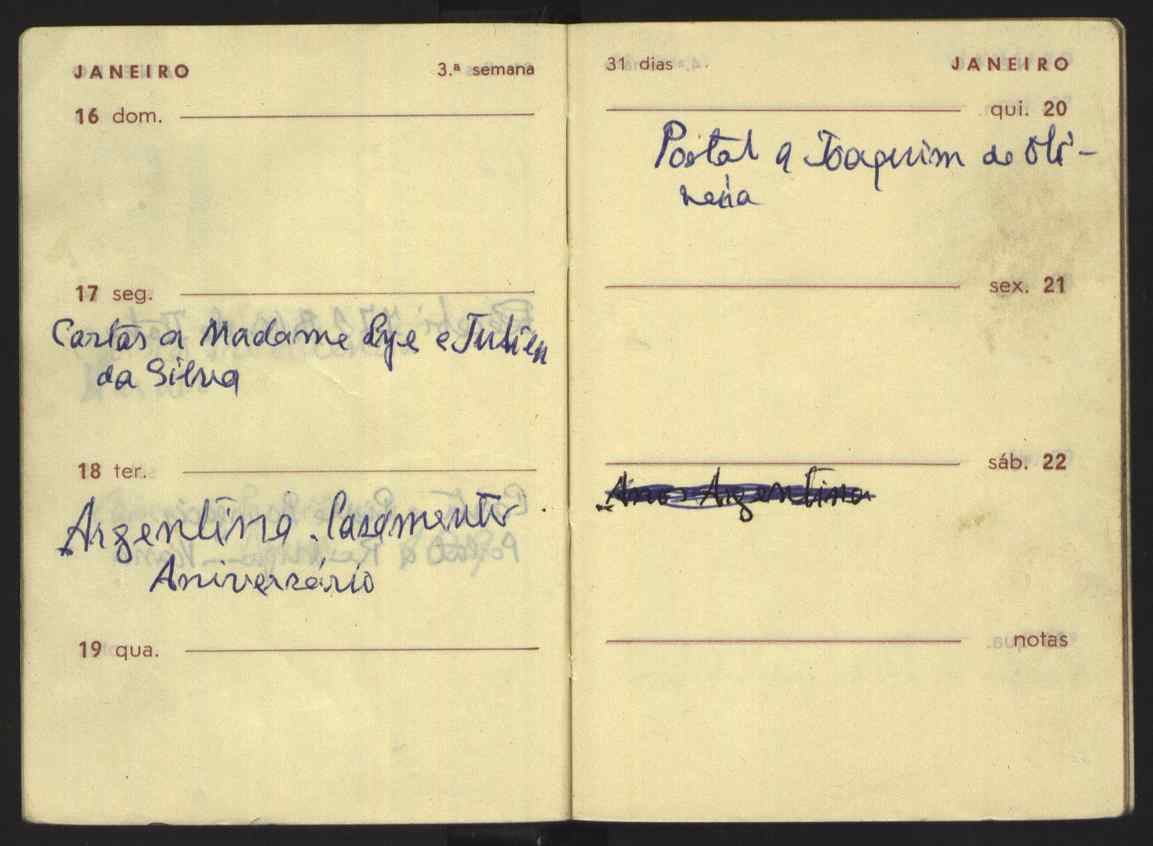 JANEIRO
3.ª semana
16 dom.
17 seg.
Cartas a Madame Lye e Julien
da Silva
18 ter.
Argentina. Casamento
Aniversário
19 qua.
31 dias
JANEIRO
qui. 20
Postal a Joaquim de Oli-
veira
sex. 21
sáb. 22
Anos Argentina
notas